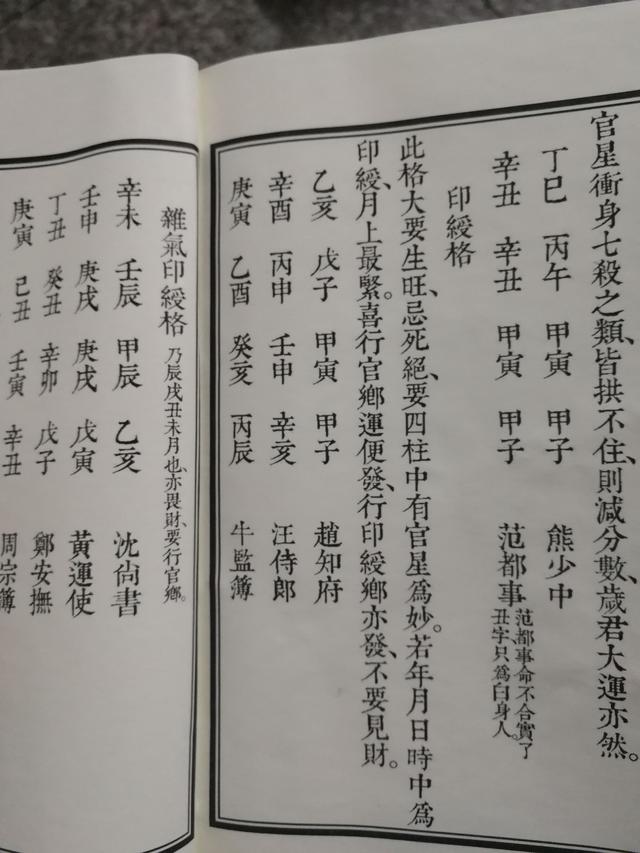 官星衝身七殺之類、皆拱不住、則減分數、歲君大運亦然。
丁巳 丙午 甲寅 甲子 熊少中
辛丑 辛丑 甲寅 甲子 范都事 范都事命不合實了丑字、只為白身人。
印綬格
此格大要生旺、忌死絕、要四柱中有官星為妙。若年月日時中為
印綬、月上最緊。喜行官鄉運便發、行印綬鄉亦發、不要見財。
乙亥 戊子 甲寅 甲子 趙知府
辛酉 丙申 壬申 辛亥 汪侍郎
庚寅 乙酉 癸亥 丙辰 牛監簿
雜氣印綬格 乃辰戌丑未月也、亦畏財、要行官鄉。
辛未 壬辰 甲辰 乙亥 沈尙書
壬申 庚戌 庚戌 戊寅 黃運使
丁丑 癸丑 辛卯 戊子 鄭安撫
庚寅 己丑 壬寅 辛丑 周宗簿